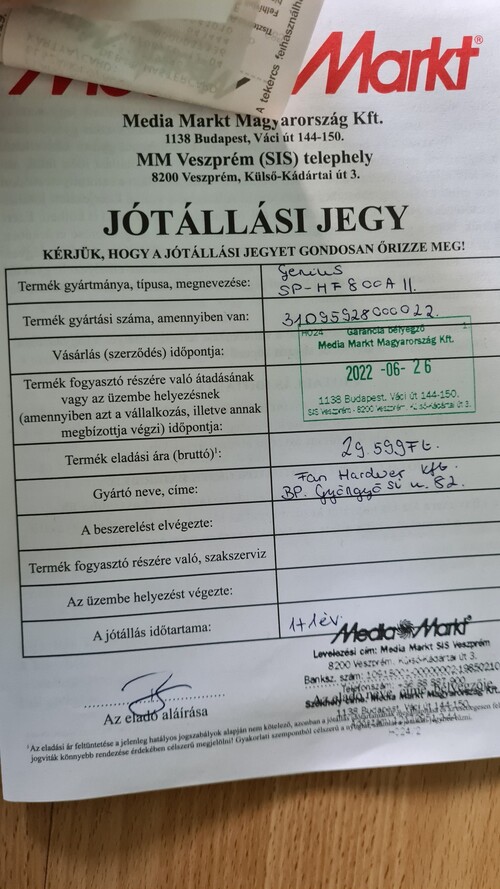 Markt®
A tekercs felhasználha
Media Markt Magyarország Kft.
1138 Budapest, Váci út 144-150.
MM Veszprém (SIS) telephely
8200 Veszprém, Külső-Kádártai út 3.
JÓTÁLLÁSI JEGY
KÉRJÜK, HOGY A JÓTÁLLÁSI JEGYET GONDOSAN ŐRIZZE MEG!
Termék gyártmánya, típusa, megnevezése:
Genius
SP-HF800A II.
Termék gyártási száma, amennyiben van:
31095928000022.
Vásárlás (szerződés) időpontja:
H024 Garancia bélyegző 1
Media Markt Magyarország Kft.
2022 -06- 26
1138 Budapest, Váci út 144-150.
SIS Veszprém - 8200 Veszprém, Külső-Kádártai út 3.
Termék fogyasztó részére való átadásának
vagy az üzembe helyezésnek
(amennyiben azt a vállalkozás, illetve annak
megbízottja végzi) időpontja:
Termék eladási ára (bruttó)¹:
29.599Ft.
Gyártó neve, címe:
Fan Hardwer Kft.
BP. Gyöngyösi u. 82.
A beszerelést elvégezte:
Termék fogyasztó részére való, szakszerviz
Az üzembe helyezést végezte:
A jótállás időtartama:
1+1 év.
Media Markt®
Levelezési cím: Media Markt SIS Veszprém
8200 Veszprém, Külső-Kádártai út 3.
Banksz. szám:
1138 Budapest, Váci út 144-150.
H024 2
Az eladó aláírása
¹Az eladási ár feltüntetése a jelenleg hatályos jogszabályok alapján nem kötelező, azonban a
jogviták könnyebb rendezése érdekében célszerű megjelölni! Gyakorlati szempontból célszerű a